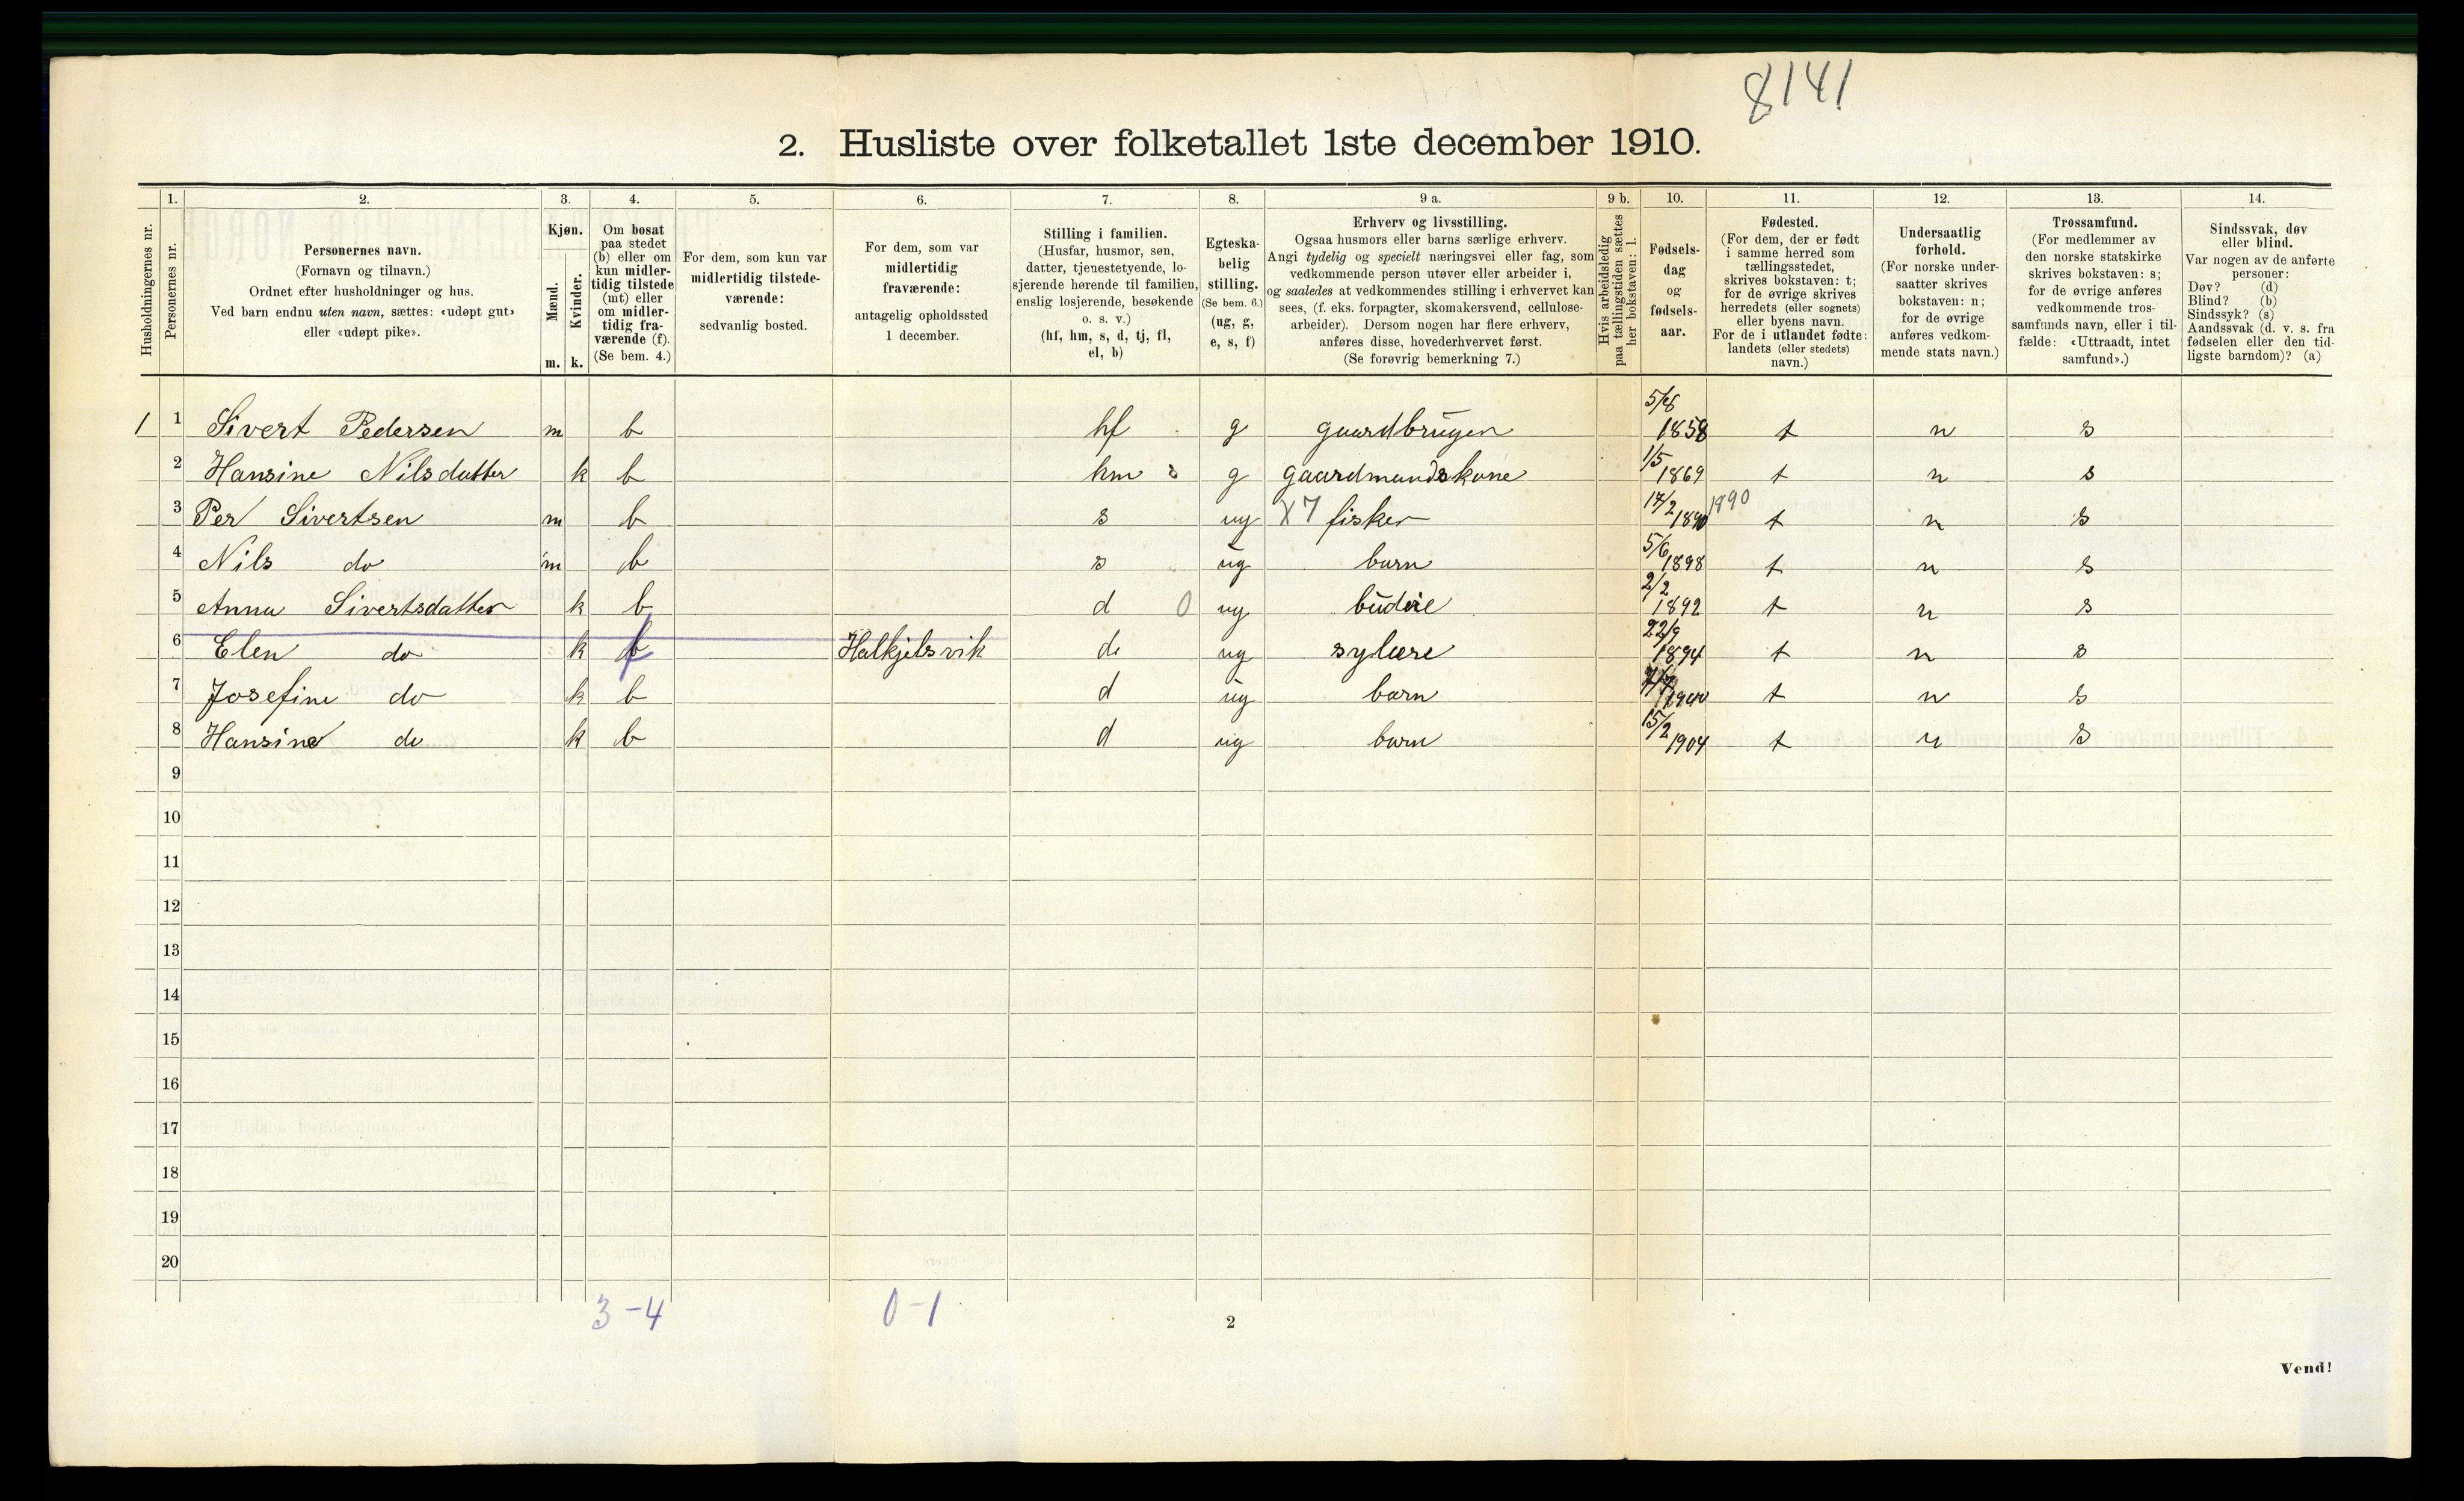 8141
2. Husliste over folketallet 1ste december 1910.
Husholdningernes nr.
1.
Personernes nr.
2.
Personernes navn.
(Fornavn og tilnavn.)
Ordnet efter husholdninger og hus.
Ved barn endnu uten navn, sættes: «udøpt gut»
eller «udøpt pike».
3.
Kjøn.
Mænd.
Kvinder.
m. k.
4.
Om bosat
paa stedet
(b) eller om
kun midler-
tidig tilstede
(mt) eller
om midler-
tidig fra-
værende (f).
(Se bem. 4.)
5.
For dem, som kun var
midlertidig tilstede-
værende:
sedvanlig bosted.
6.
For dem, som var
midlertidig
fraværende:
antagelig opholdssted
1 december.
7.
Stilling i familien.
(Husfar, husmor, søn,
datter, tjenestetyende, lo-
sjerende hørende til familien,
enslig losjerende, besøkende
o. s. v.)
(hf, hm, s, d, tj, fl,
el, b)
8.
Egteska-
belig
stilling.
(Se bem. 6.)
(ug, g,
e, s, f)
9 a.
Erhverv og livsstilling.
Ogsaa husmors eller barns særlige erhverv.
Angi tydelig og specielt næringsvei eller fag, som
vedkommende person utøver eller arbeider i,
og saaledes at vedkommendes stilling i erhvervet kan
sees, (f. eks. forpagter, skomakersvend, cellulose-
arbeider). Dersom nogen har flere erhverv,
anføres disse, hovederhvervet først.
(Se forøvrig bemerkning 7.)
9 b.
Hvis arbeidsledig
paa tællingstiden sættes
her bokstaven: l.
10.
Fødsels-
dag
og
fødsels-
aar.
11.
Fødested.
(For dem, der er født
i samme herred som
tællingsstedet,
skrives bokstaven: t;
for de øvrige skrives
herredets (eller sognets)
eller byens navn.
For de i utlandet fødte:
landets (eller stedets)
navn.)
12.
Undersaatlig
forhold.
(For norske under-
saatter skrives
bokstaven: n;
for de øvrige
anføres vedkom-
mende stats navn.)
13.
Trossamfund.
(For medlemmer av
den norske statskirke
skrives bokstaven: s;
for de øvrige anføres
vedkommende tros-
samfunds navn, eller i til-
fælde: «Uttraadt, intet
samfund».)
14.
Sindssvak, døv
eller blind.
Var nogen av de anførte
personer:
Døv? (d)
Blind? (b)
Sindssyk? (s)
Aandssvak (d. v. s. fra
fødselen eller den tid-
ligste barndom)? (a)
1 1 Sivert Pedersen m b hf g gaardbruger 5/8 1858 t n s
2 Hansine Nilsdatter k b hm g gaardmandskone 1/5 1869 t n s
3 Per Sivertsen m b s ug X7 fisker 17/2 1890 1890 t n s
4 Nils do m b s ug barn 5/6 1898 t n s
5 Anna Sivertsdatter k b d 0 ug budeie 2/2 1892 t n s
6 Elen do k f Halkjelsvik d ug sylære 22/9 1894 t n s
7 Josefine do k b d ug barn 1900 t n s
8 Hansine do k b d ug barn 15/2 1904 t n s
9
10
11
12
13
14
15
16
17
18
19
20
3-4 0-1
2
Vend!